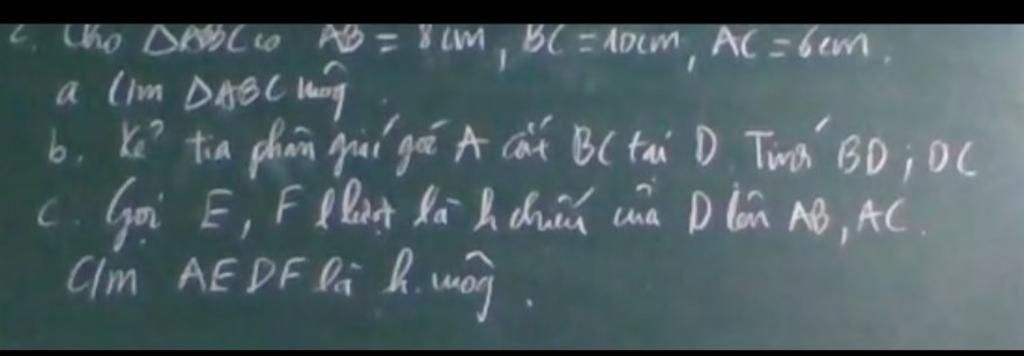 2. Cho ΔABC có AB = 8cm, BC = 10cm, AC = 6cm.
a C/m ΔABC vuông.
b. Kẻ tia phân giác góc A cắt BC tại D. Tính BD; DC
c. Gọi E, F l lượt là h chiếu của D lên AB, AC.
C/m AEDF là h. vuông.